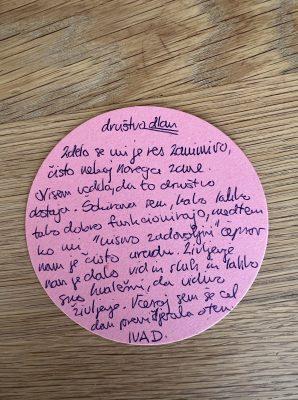 društva dlan
Zdelo se mi je res zanimivo,
čisto nekaj novega zame.
Nisem vedela, da to društvo
obstaja. Šokirana sem, kako lahko
tako dobro funkcionirajo, medtem
ko mi "nismo zadovoljni" čeprav
nam je čisto vredu. Življenje
nam je dalo vid in sluh in lahko
smo hvaležni, da vidimo
življenje. Včeraj sem še cel
dan premišljevala o tem.
IVA D.